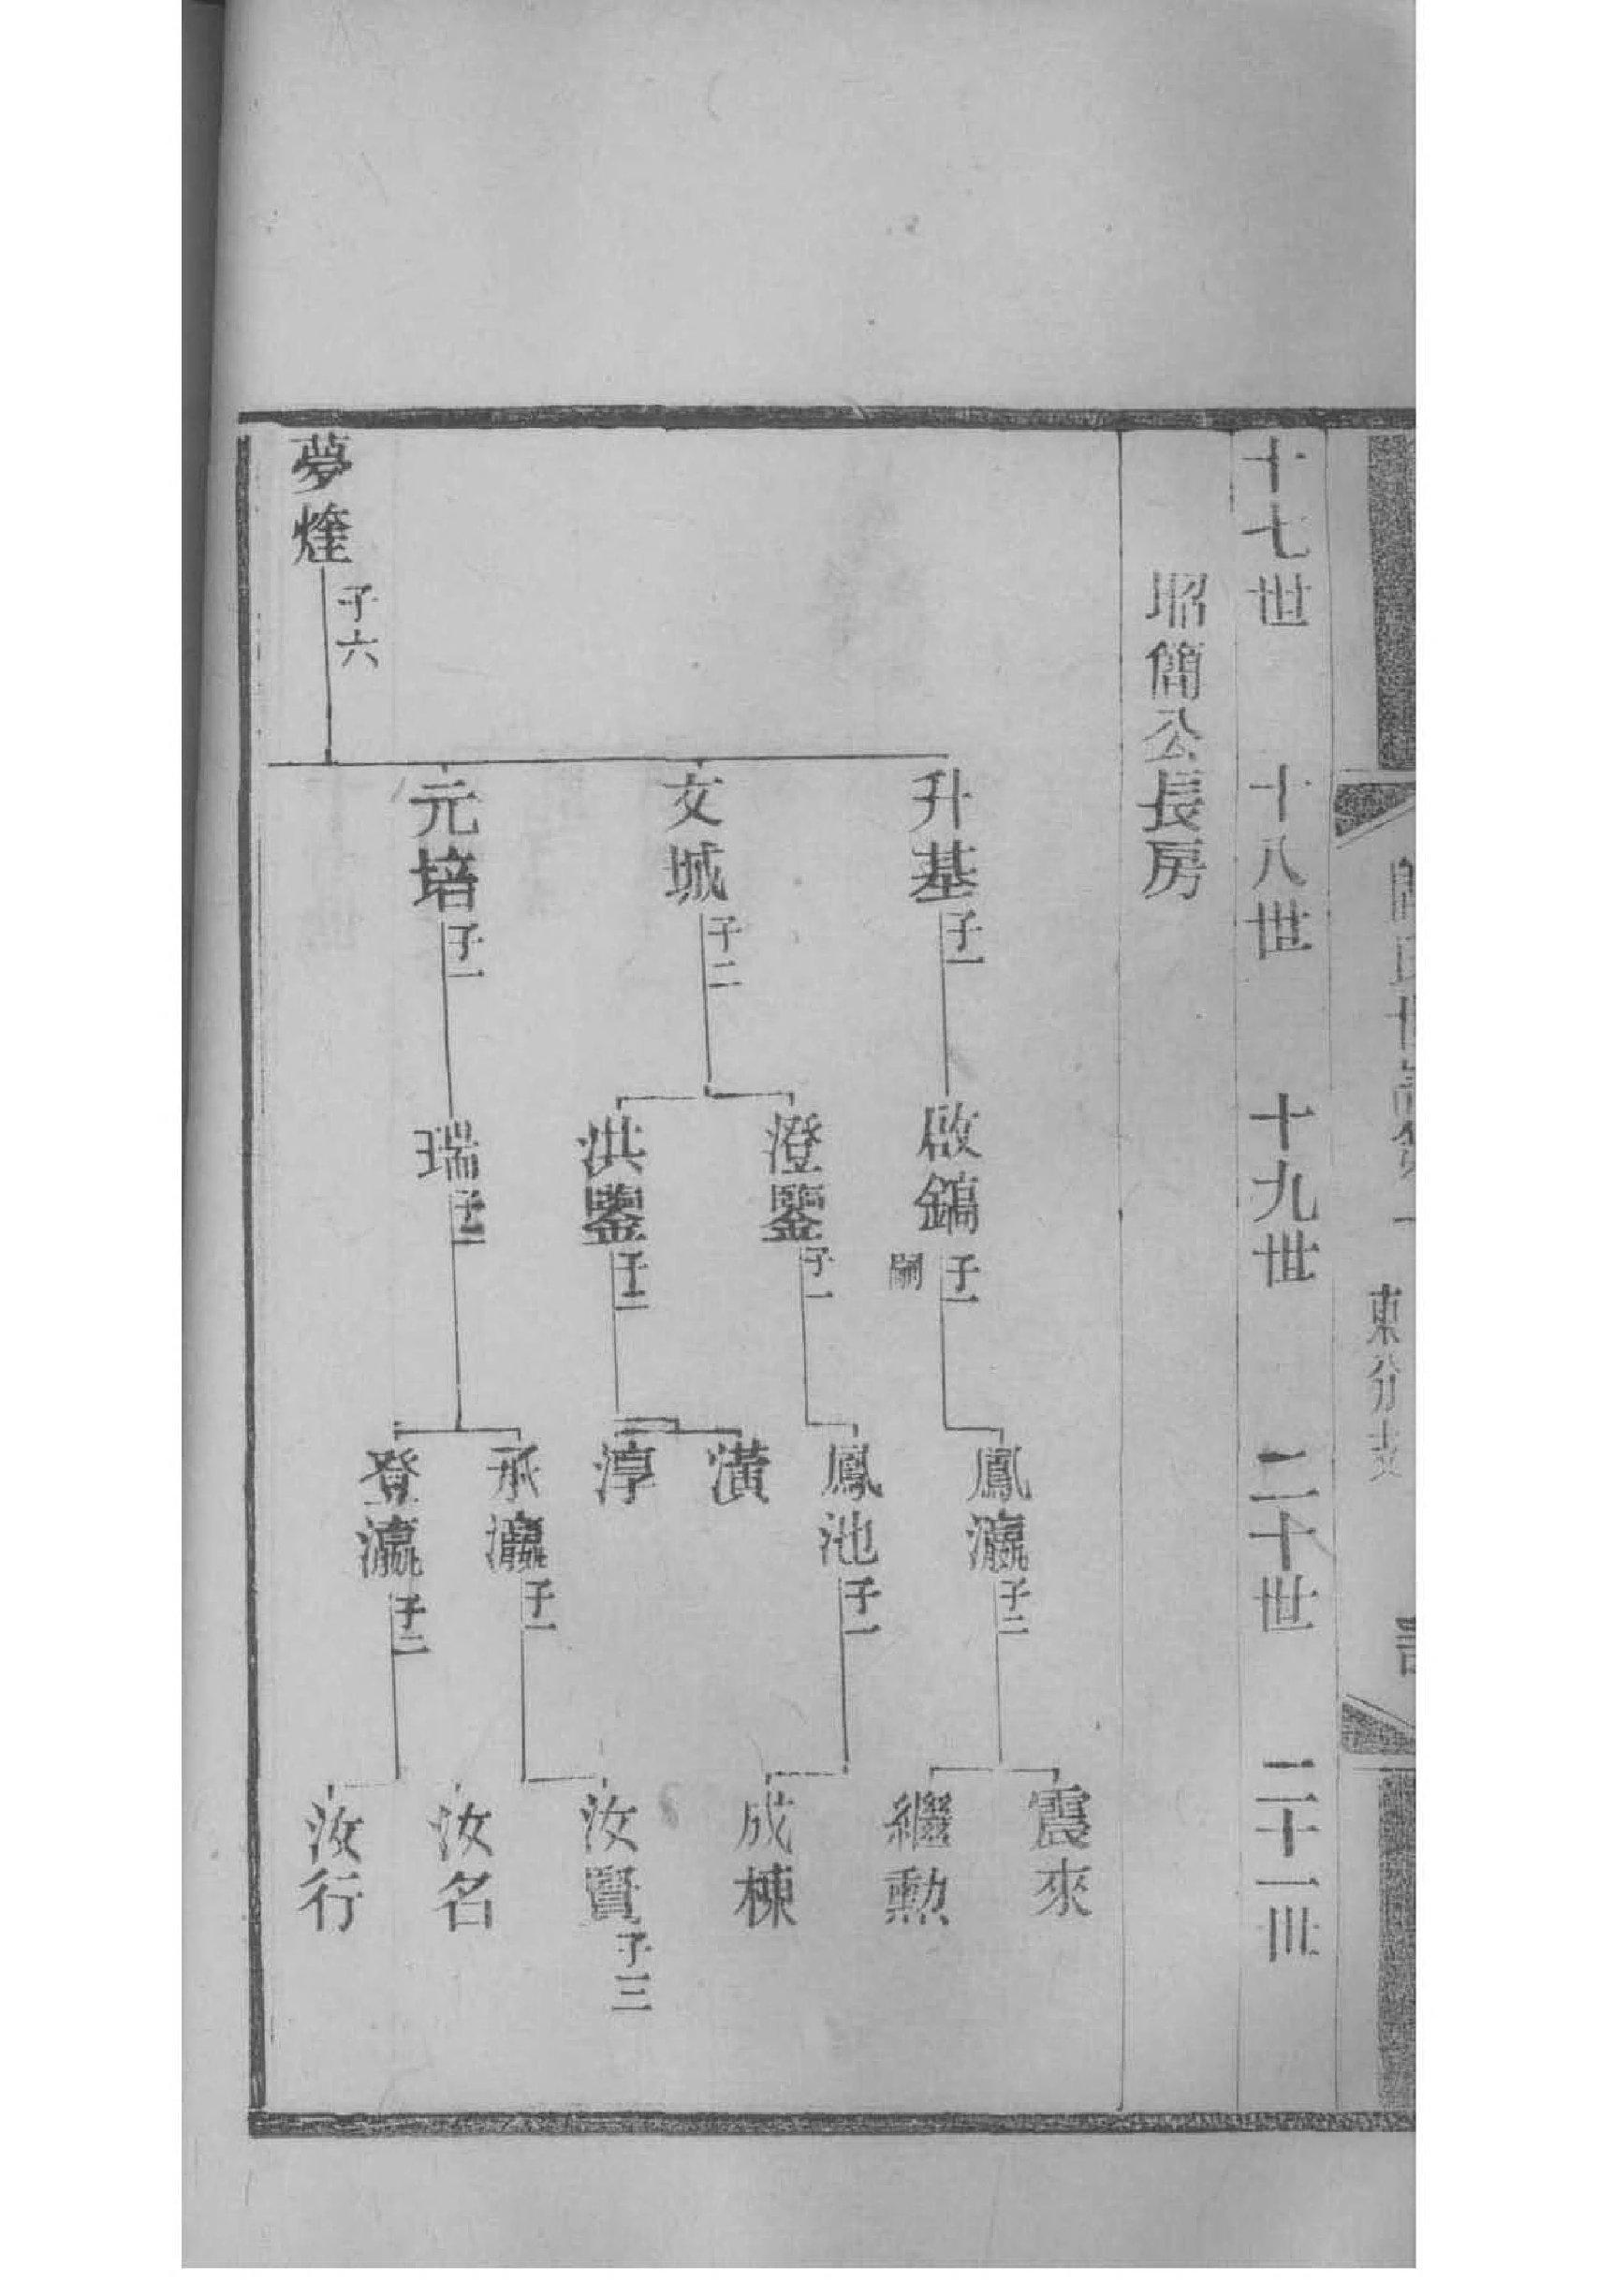 東分支
十七世
十八世
十九世
二十世
二十一世
昭簡公長房
升基 子一
啟鎬 子一 嗣
鳳瀛 子二
震來
繼勲
文城 子二
澄鑒 子一
鳳池 子一
成棟
洪鑒 子二
潢
淳
元培 子一
瑞 子二
承瀛 子一
汝賢 子三
登瀛 子二
汝名
汝行
夢煃 子六